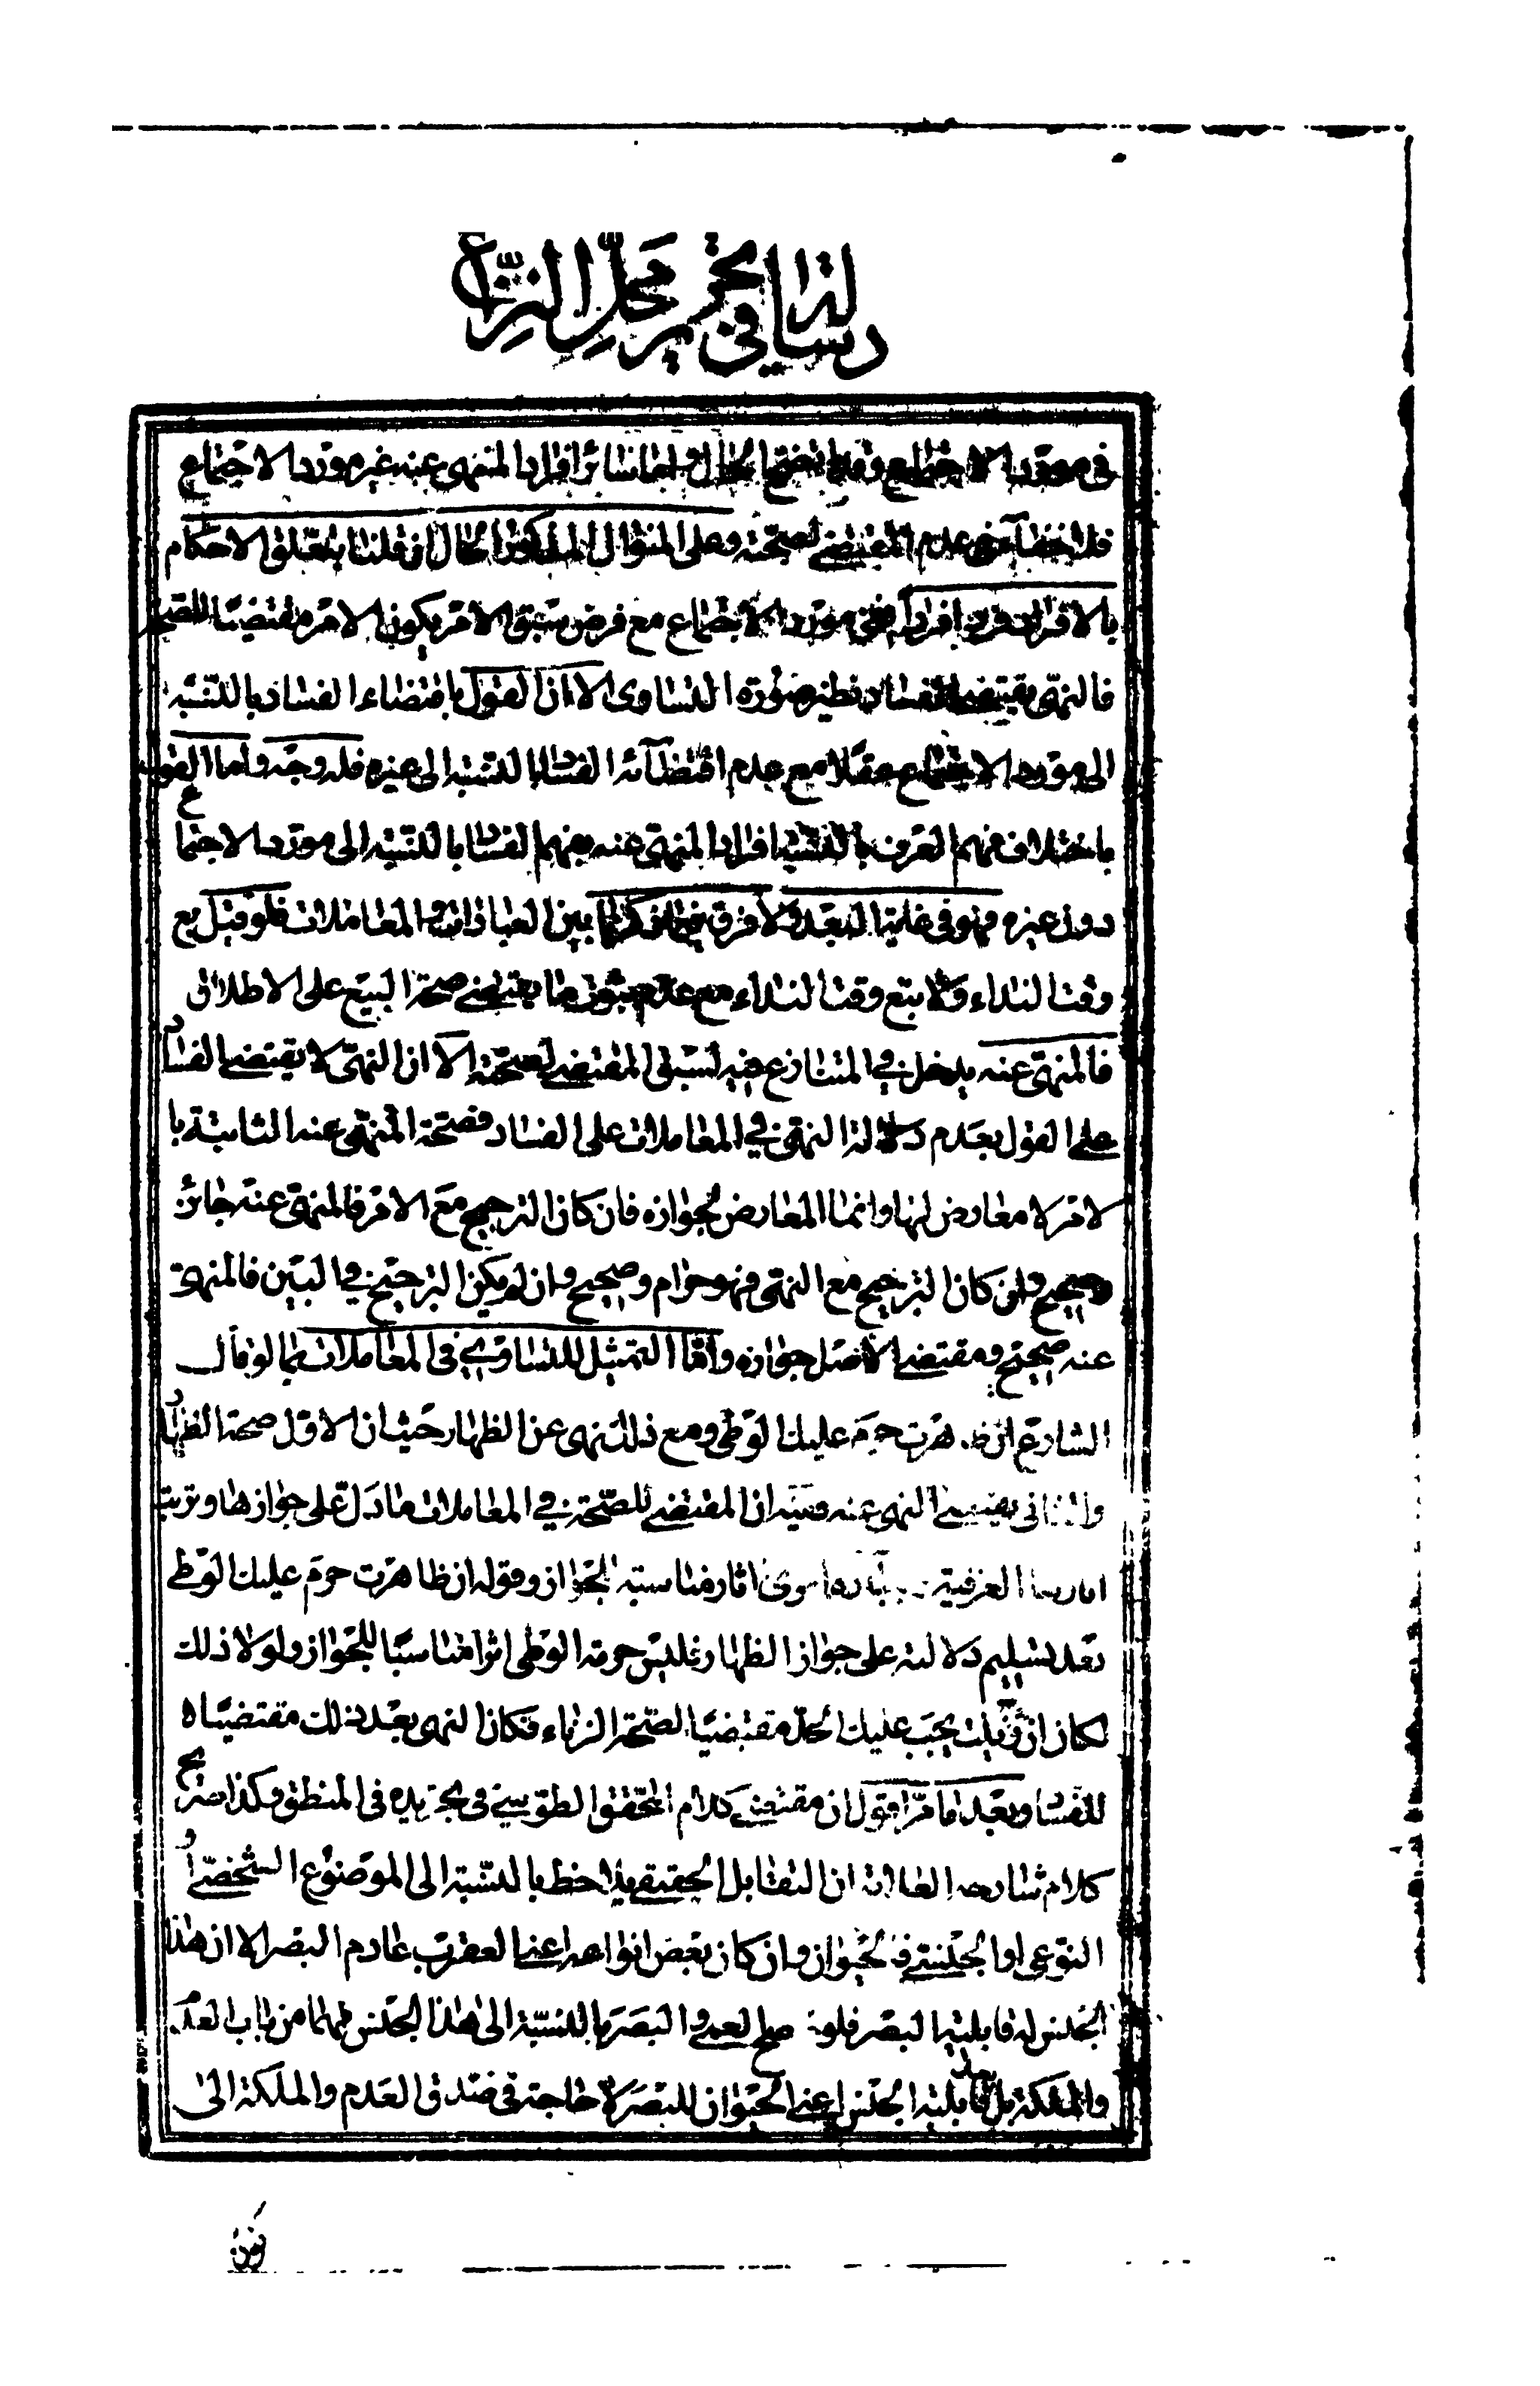 رسالة في تحرير محل النزاع
في مورد الاجتماع وقد اتضح الحال واما سائر افراد المنهى عنه غير مورد الاجتماع
فلا خفآء في عدم المقتضى لصحته وعلى المنوال المذكور الحال ان قلنا بتعلق الاحكام
بالافراد فرد افرداً ففي مورد الاجتماع مع فرض سبق الامر يكون الامر مقتضيًا للصحة
فالنهى يقتضى الفساد نظير صورة التساوى الا ان القول باقتضاء الفساد بالنسبة
الى مورد الاجتماع عقلا مع عدم اقتضآئه الفساد بالنسبة الى غيره فله وجه واما القول
باختلاف فهم العرف بالنسبة افراد المنهى عنه بفهم الفساد بالنسبة الى مورد الاجتماع
دون غيره فهو في غاية البعد ولا فرق فيما ذكرنا بين العبادات والمعاملات فلو قيل بع
وقت النداء ولا تبع وقت النداء مع عدم ثبوت ما يقتضى صحة البيع على الاطلاق
فالمنهى عنه يدخل في المتنازع فيه لسبق المقتضى لصحته الا ان النهى لا يقتضى الفساد
على القول بعدم دلالة النهى في المعاملات على الفساد فصحة المنهى عنه الثابتة با
لامر لا معارض لها وانما المعارض لجوازه فان كان الترجيح مع الامر فالمنهى عنه جائز
وصحيح وان كان الترجيح مع النهى فهو حرام وصحيح وان لم يكن الترجيح في البين فالمنهى
عنه صحيح ومقتضى الاصل جوازه واما التمثيل للتساوى في المعاملات بما لو قال
الشارع ان ظاهرت حرم عليك الوطى ومع ذلك نهى عن الظهار حيث ان الاول صحة الظهار
والثانى يقتضى النهى عنه ففيه ان المقتضى للصحة في المعاملات ما دل على جوازها وترتب
العرفية اثار مناسبة الجواز وقوله ان ظاهرت حرم عليك الوطى
بعد تسليم دلالته على جواز الظهار فليس حرمة الوطى اثرا مناسبًا للجواز ولولا ذلك
لكان ان زنيت يجب عليك الحد مقتضيًا لصحة الزناء فكان النهى بعد ذلك مقتضيًا
للفساد وبعد ما مر اقول ان مقتضى كلام المحقق الطوسى في تجريده في المنطق وكذا صريح
كلام شارحه العلامة ان التقابل الحقيقى يلاحظ بالنسبة الى الموضوع الشخصى او
النوعى او الجنسى فالحيوان وان كان بعض انواعه اعنى العقرب عادم البصر الا ان هذا
الجنس له قابلية البصر فلو صلح العمى والبصر بالنسبة الى هذا الجنس فهما من باب العدم
والملكة بل قابلية الجنس اعنى الحيوان للبصر لا حاجة في صدق العدم والملكة الى